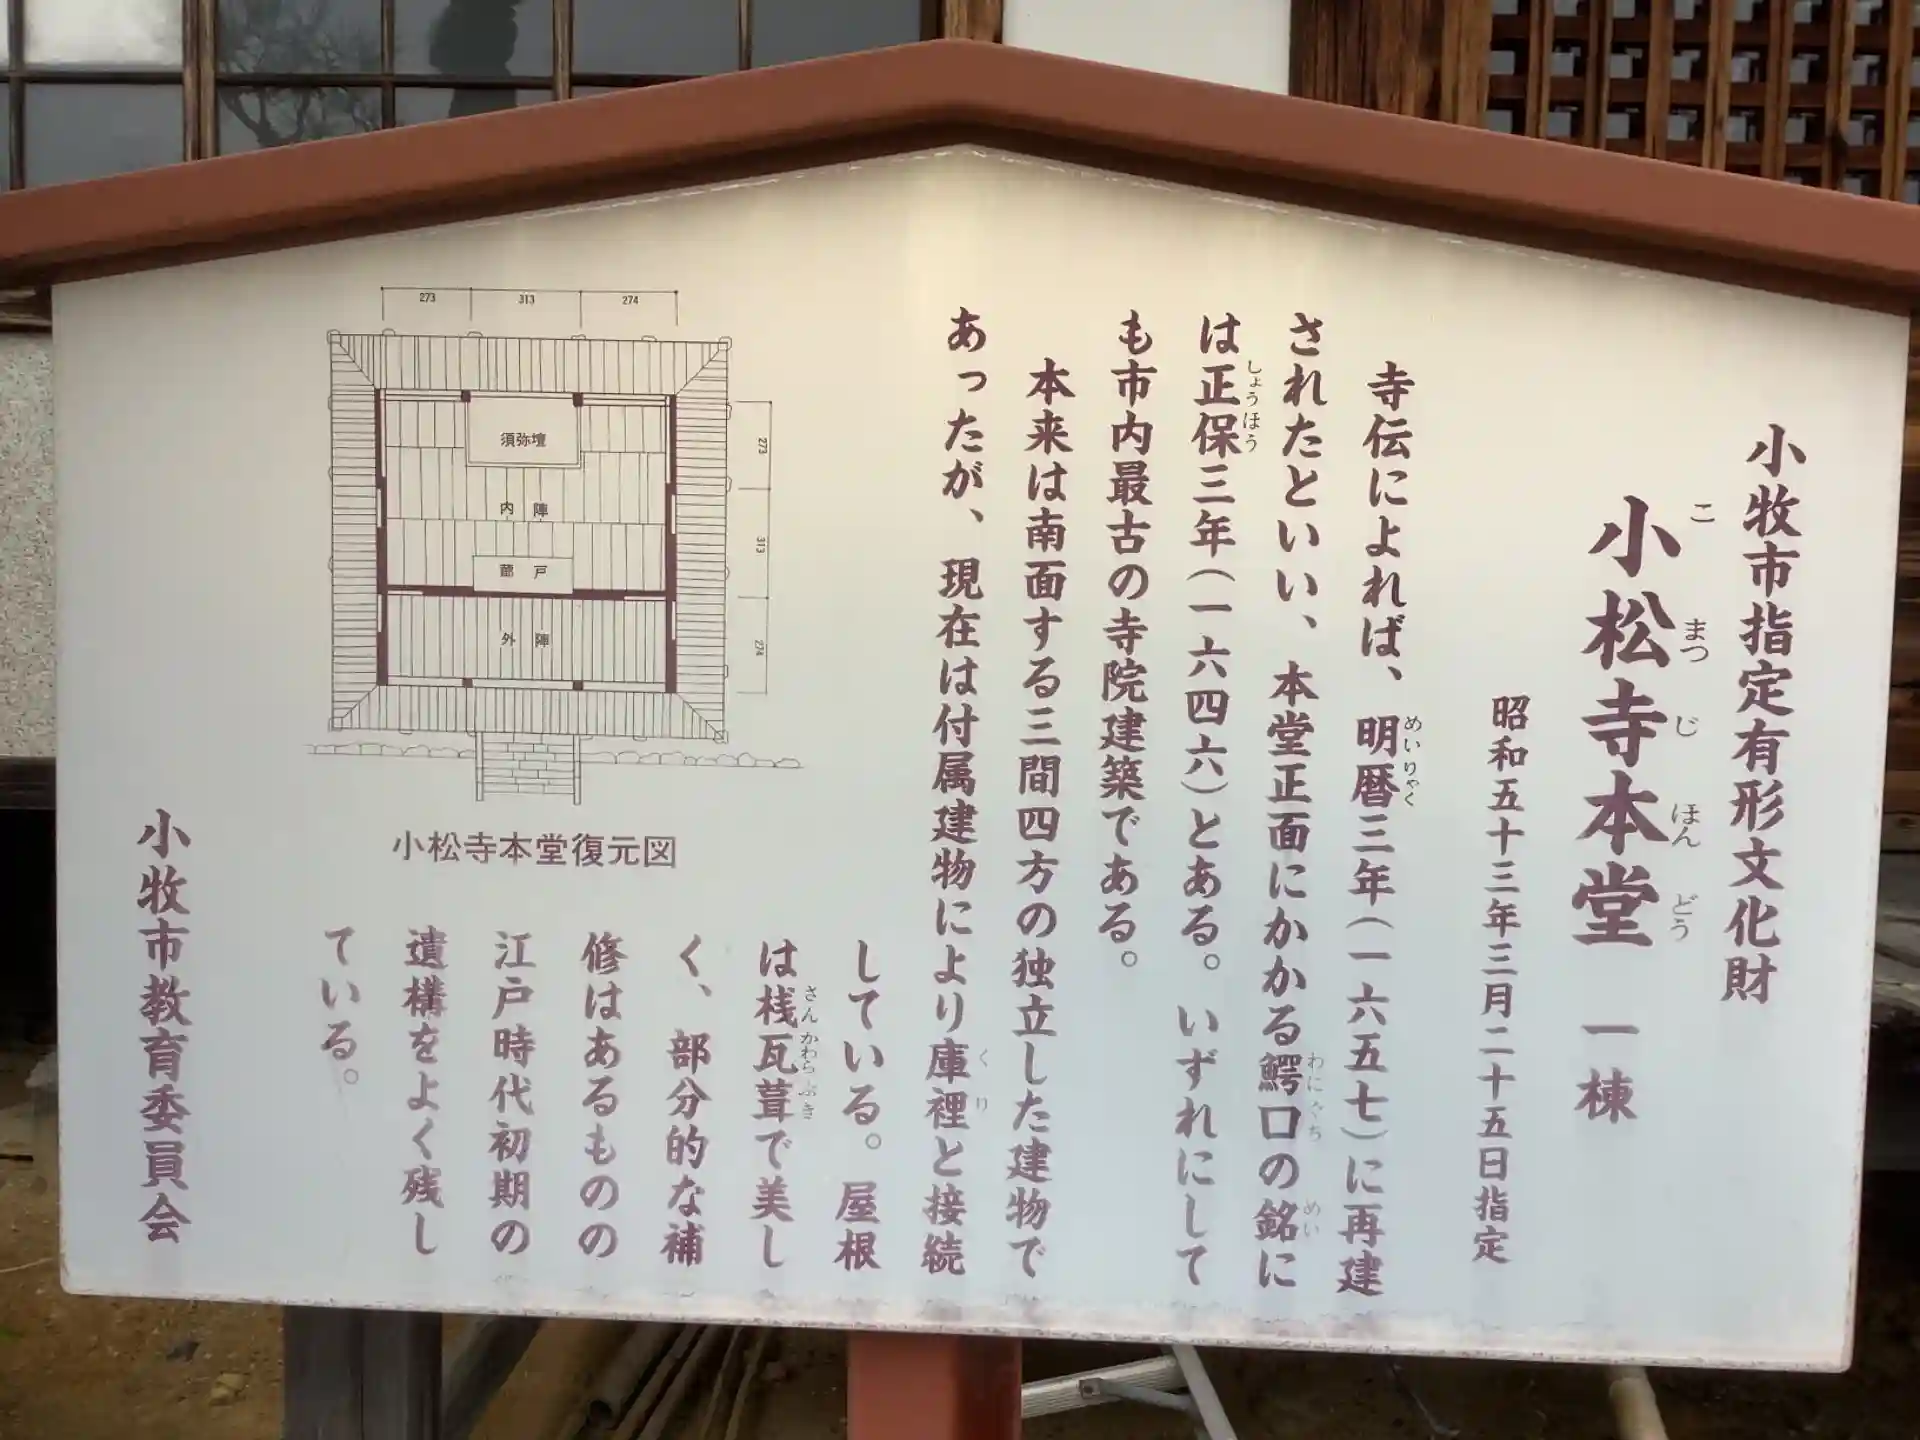 小牧市指定有形文化財
小松寺本堂 一棟
こまつじほんどう
昭和五十三年三月二十五日指定
寺伝によれば、明暦三年(一六五七)に再建
めいりゃく
されたといい、本堂正面にかかる鰐口の銘に
わにぐち
めい
は正保三年(一六四六)とある。いずれにして
しょうほう
も市内最古の寺院建築である。
本来は南面する三間四方の独立した建物で
あったが、現在は付属建物により庫裡と接続
くり
している。屋根
は桟瓦葺で美し
さんかわらぶき
く、部分的な補
修はあるものの
江戸時代初期の
遺構をよく残し
ている。
273 313 274
須弥壇
内陣
蔀戸
外陣
273
313
274
小松寺本堂復元図
小牧市教育委員会